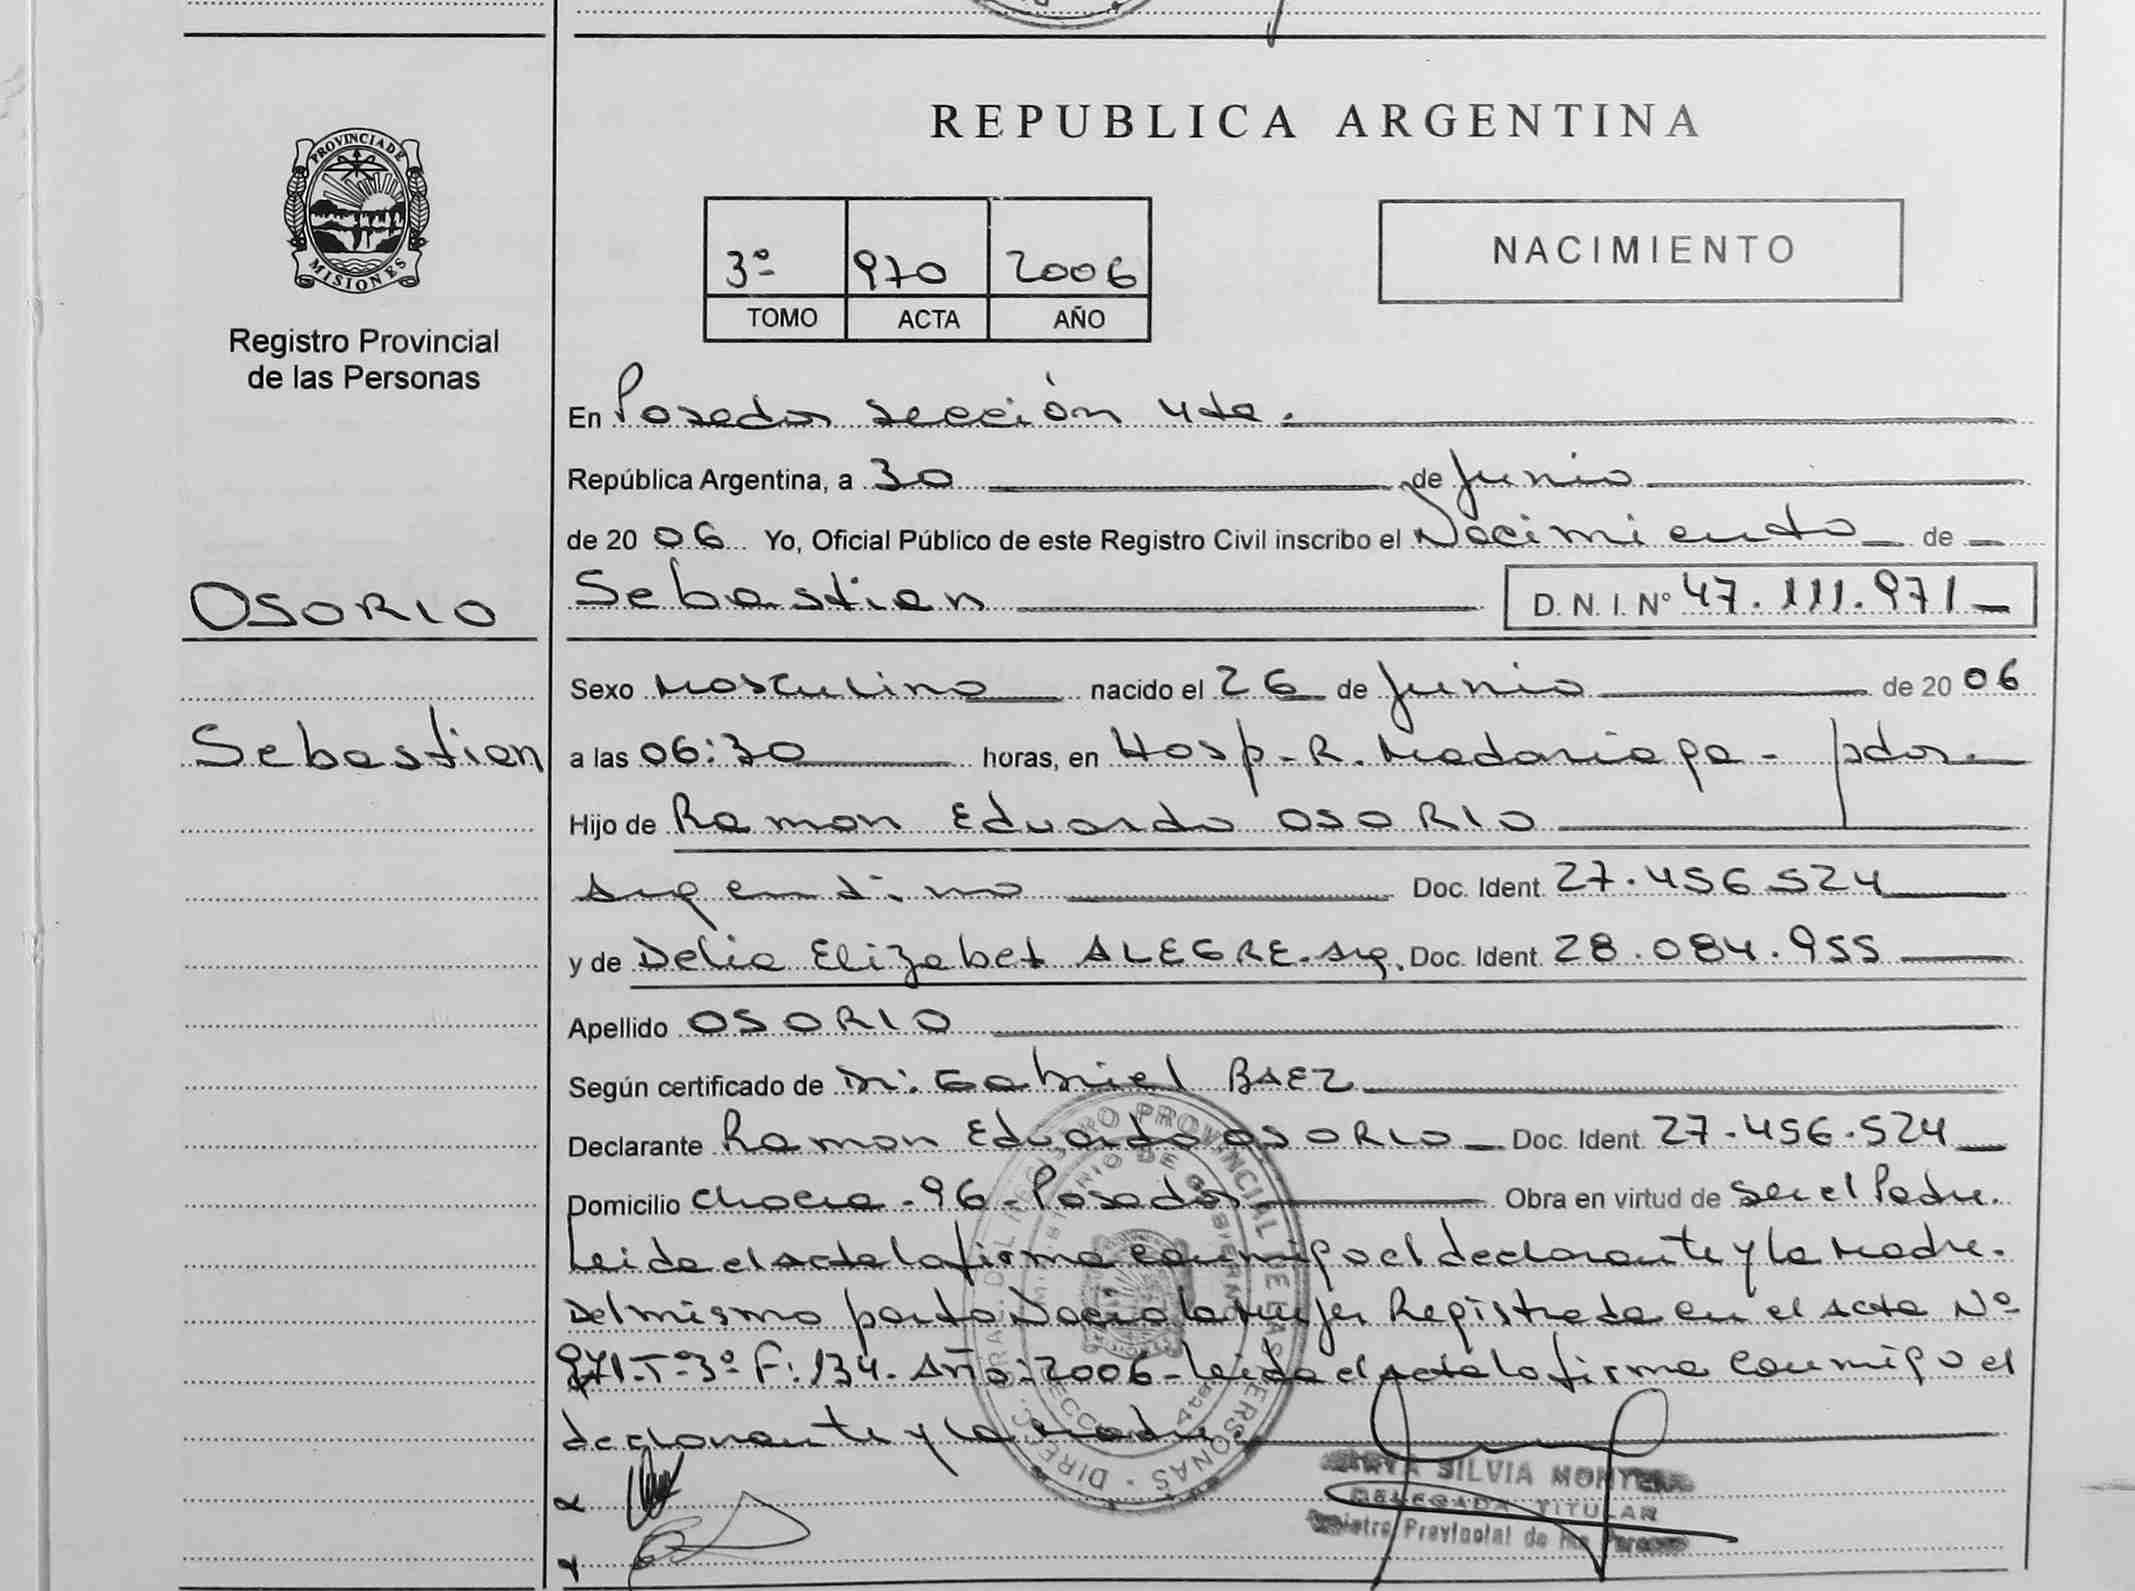 REPUBLICA ARGENTINA
PROVINCIA DE
MISIONES
Registro Provincial
de las Personas
3º 970 2006
TOMO ACTA AÑO
NACIMIENTO
En Posadas sección 4ta.
República Argentina, a 30 de Junio
de 20 06 Yo, Oficial Público de este Registro Civil inscribo el Nacimiento de
OSORIO
Sebastian
Sebastian D. N. I. Nº 47.111.971
Sexo Masculino nacido el 26 de Junio de 20 06
a las 06:30 horas, en Hosp. R. Madariaga - pdas.
Hijo de Ramon Eduardo OSORIO
Argentino Doc. Ident. 27.456.524
y de Delia Elizabet ALEGRE. Arg. Doc. Ident. 28.084.955
Apellido OSORIO
Según certificado de Dr. Gabriel BAEZ
Declarante Ramon Eduardo OSORIO Doc. Ident. 27.456.524
Domicilio chacra - 96 - Posadas Obra en virtud de ser el Padre.
Leida el acta la firma conmigo el declarante y la Madre.
Del mismo parto Nacio la mujer Registrada en el acta Nº
971. Tº 3º F: 134. Año: 2006 - Leida el acta la firma conmigo el
declarante y la Madre
SILVIA
DELEGADA TITULAR
Registro Provincial de las Personas